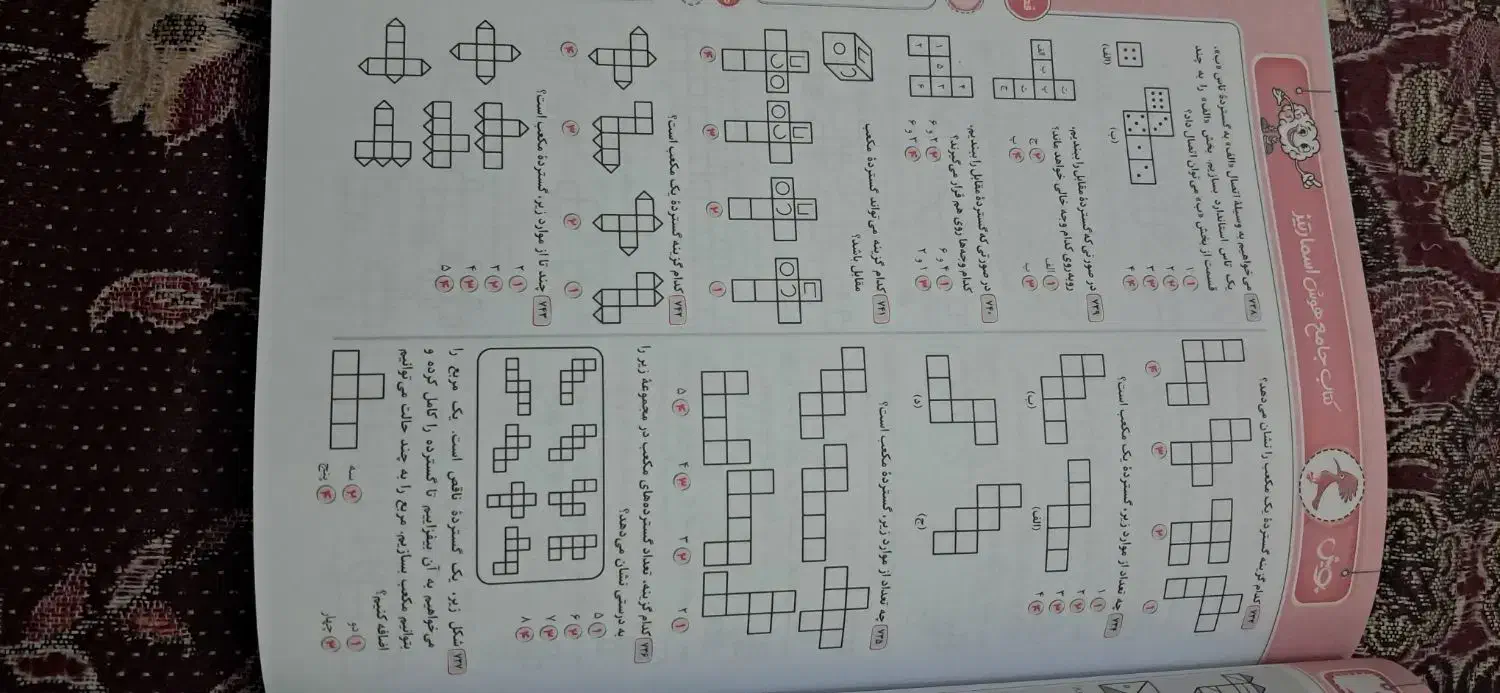 کتاب جامع هوش اسمارتیز
۷۳۳ کدام گزینه گستردهٔ یک مکعب را نشان می‌دهد؟
۱
۲
۳
۴
چه تعداد از موارد زیر، گستردهٔ یک مکعب است؟
(الف)
(ب)
(ج)
(د)
۱ ۱
۲ ۲
۳ ۳
۴ ۴
۷۳۵ چه تعداد از موارد زیر، گستردهٔ مکعب است؟
۱ ۲
۲ ۳
۳ ۴
۴ ۵
۷۳۶ کدام گزینه، تعداد گسترده‌های مکعب در مجموعهٔ زیر را
به درستی نشان می‌دهد؟
۱ ۵
۲ ۶
۳ ۷
۴ ۸
۷۳۷ شکل زیر، یک گستردهٔ ناقص است. یک مربع را
می‌خواهیم به آن بیفزاییم تا گسترده را کامل کرده و
بتوانیم مکعب بسازیم. مربع را به چند حالت می‌توانیم
اضافه کنیم؟
۱ دو
۲ سه
۳ چهار
۴ پنج
۷۳۸ می‌خواهیم به وسیلهٔ اتصال «الف» به گستردهٔ تاس «ب»،
یک تاس استاندارد بسازیم. بخش «الف» را به چند
قسمت از بخش «ب» می‌توان اتصال داد؟
(الف)
(ب)
۱ ۱
۲ ۲
۳ ۳
۴ ۴
۷۳۹ در صورتی که گستردهٔ مقابل را ببندیم،
روبه‌روی کدام وجه خالی خواهد ماند؟
۱ الف
۲ ج
۳ ب
۴ پ
۷۴۰ در صورتی که گستردهٔ مقابل را ببندیم،
کدام وجه‌ها روی هم قرار می‌گیرند؟
۱ ۴ و ۶
۲ ۳ و ۶
۳ ۱ و ۲
۴ ۲ و ۶
۷۴۱ کدام گزینه می‌تواند گستردهٔ مکعب
مقابل باشد؟
۱
۲
۳
۴
۷۴۲ کدام گزینه گستردهٔ یک مکعب است؟
۱
۲
۳
۴
۷۴۳ چند تا از موارد زیر، گستردهٔ مکعب است؟
۱ ۲
۲ ۳
۳ ۴
۴ ۵